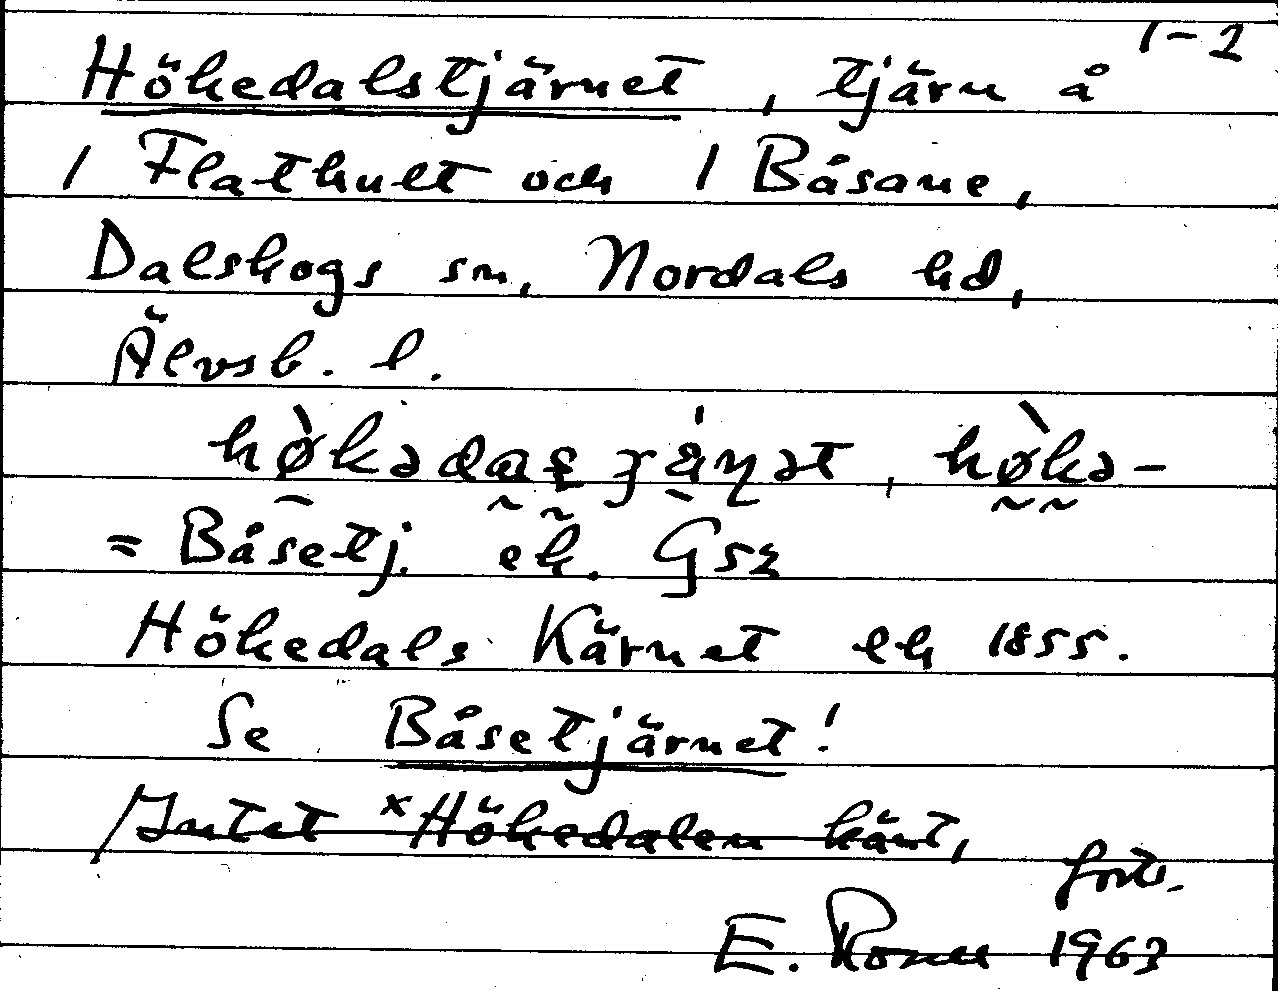 1-2
Hökedalstjärnet, tjärn å
1 Flathult och 1 Båsane,
Dalskogs sn, Nordals hd,
Älvsb. l.
= Båsetj. ek. Gsz
Hökedals Kärnet ek 1855.
Se Båsetjärnet!
Intet ˣHökedalen känt,
forts.
E. Rome 1963